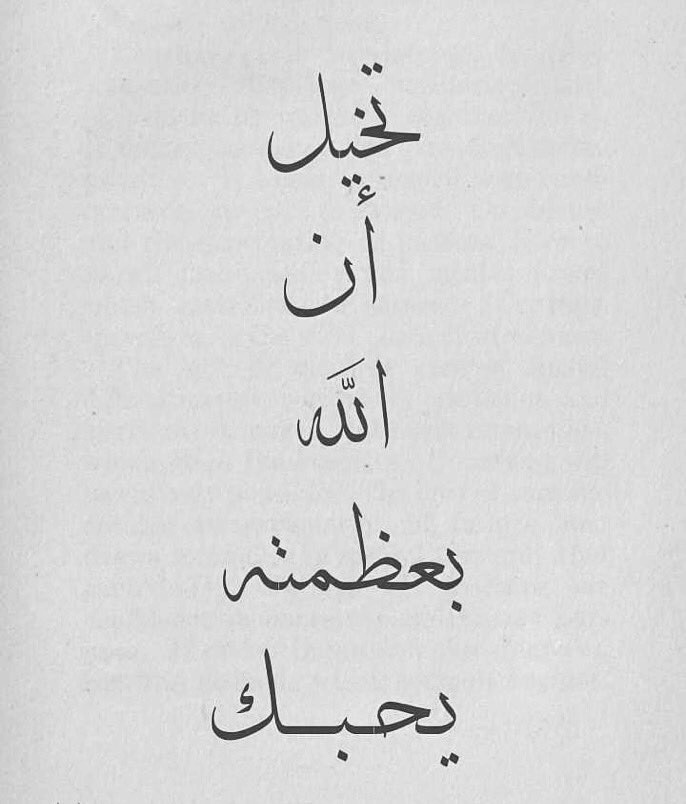 تخيل
أن
اللّه
بعظمته
يحبـــك